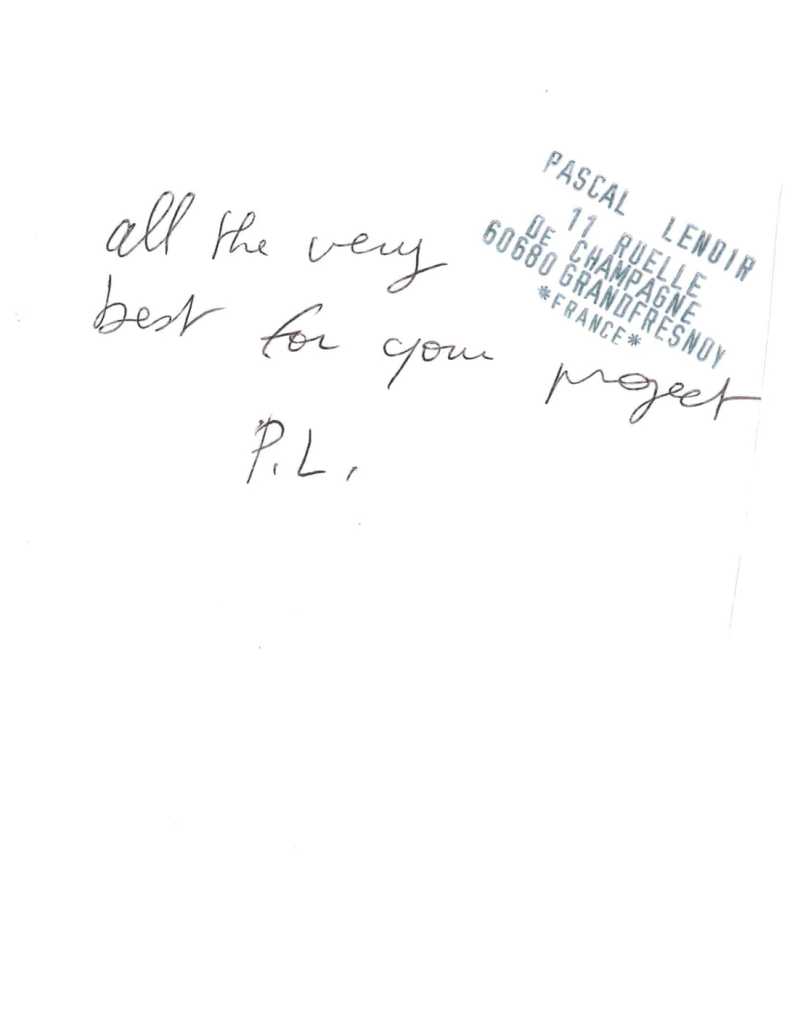 all the very
best for your project
P.L.
PASCAL LENOIR
11 RUELLE
DE CHAMPAGNE
60680 GRANDFRESNOY
*FRANCE*